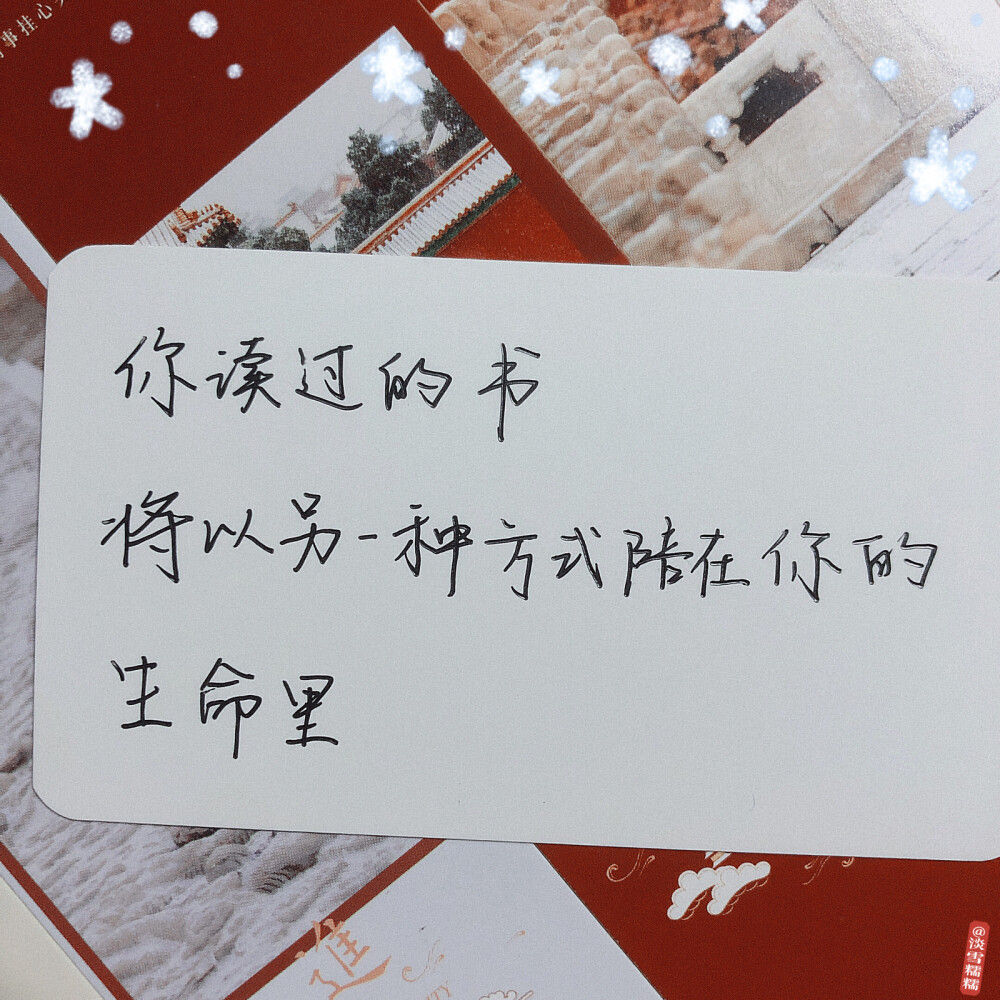 事挂心头
你读过的书
将以另一种方式陪在你的
生命里
進
@淡雪糯糯